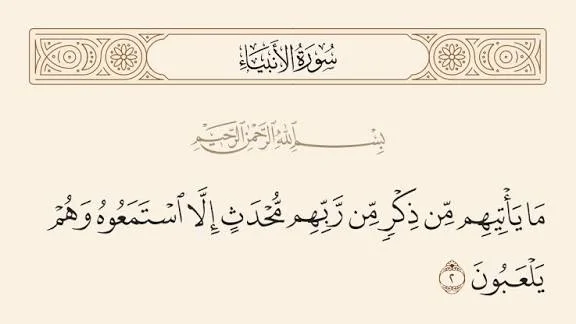 سُورَةُ الأَنبِيَاءِ
بِسْمِ اللَّهِ الرَّحْمَٰنِ الرَّحِيمِ
مَا يَأْتِيهِم مِّن ذِكْرٍ مِّن رَّبِّهِم مُّحْدَثٍ إِلَّا ٱسْتَمَعُوهُ وَهُمْ
يَلْعَبُونَ ٢